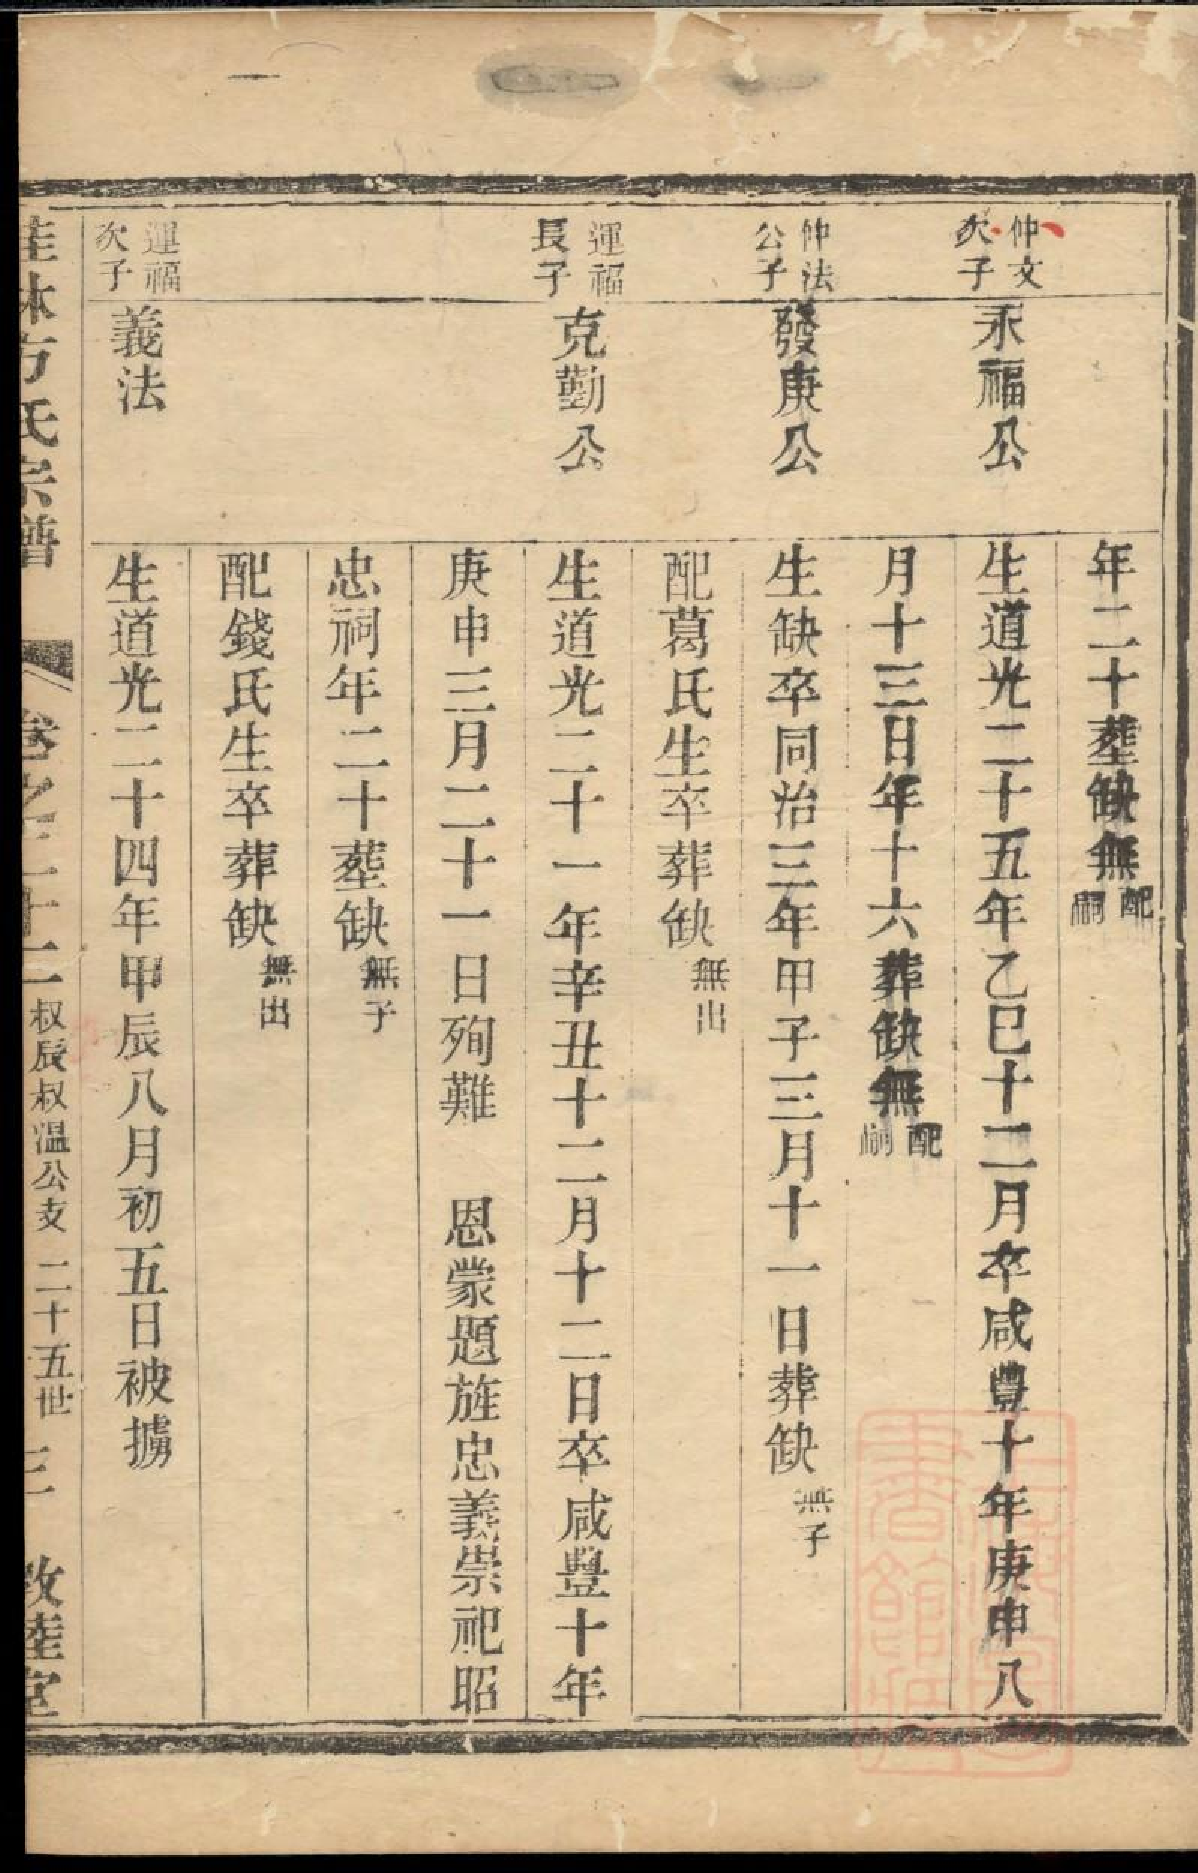 年二十塟缺無配嗣
仲文次子
永福公
生道光二十五年乙巳十二月卒咸豐十年庚申八
月十三日年十六葬缺無配嗣
仲法公子
發庚公
生缺卒同治三年甲子三月十一日葬缺無子
配葛氏生卒葬缺無出
運福長子
克勤公
生道光二十一年辛丑十二月十二日卒咸豐十年
庚申三月二十一日殉難 恩蒙題旌忠義崇祀昭
忠祠年二十塟缺無子
配錢氏生卒葬缺無出
運福次子
義法
生道光二十四年甲辰八月初五日被擄
桂林方氏宗譜 卷之二十二 叔辰叔溫公支 二十五世 三 敦睦堂
上海圖書館藏